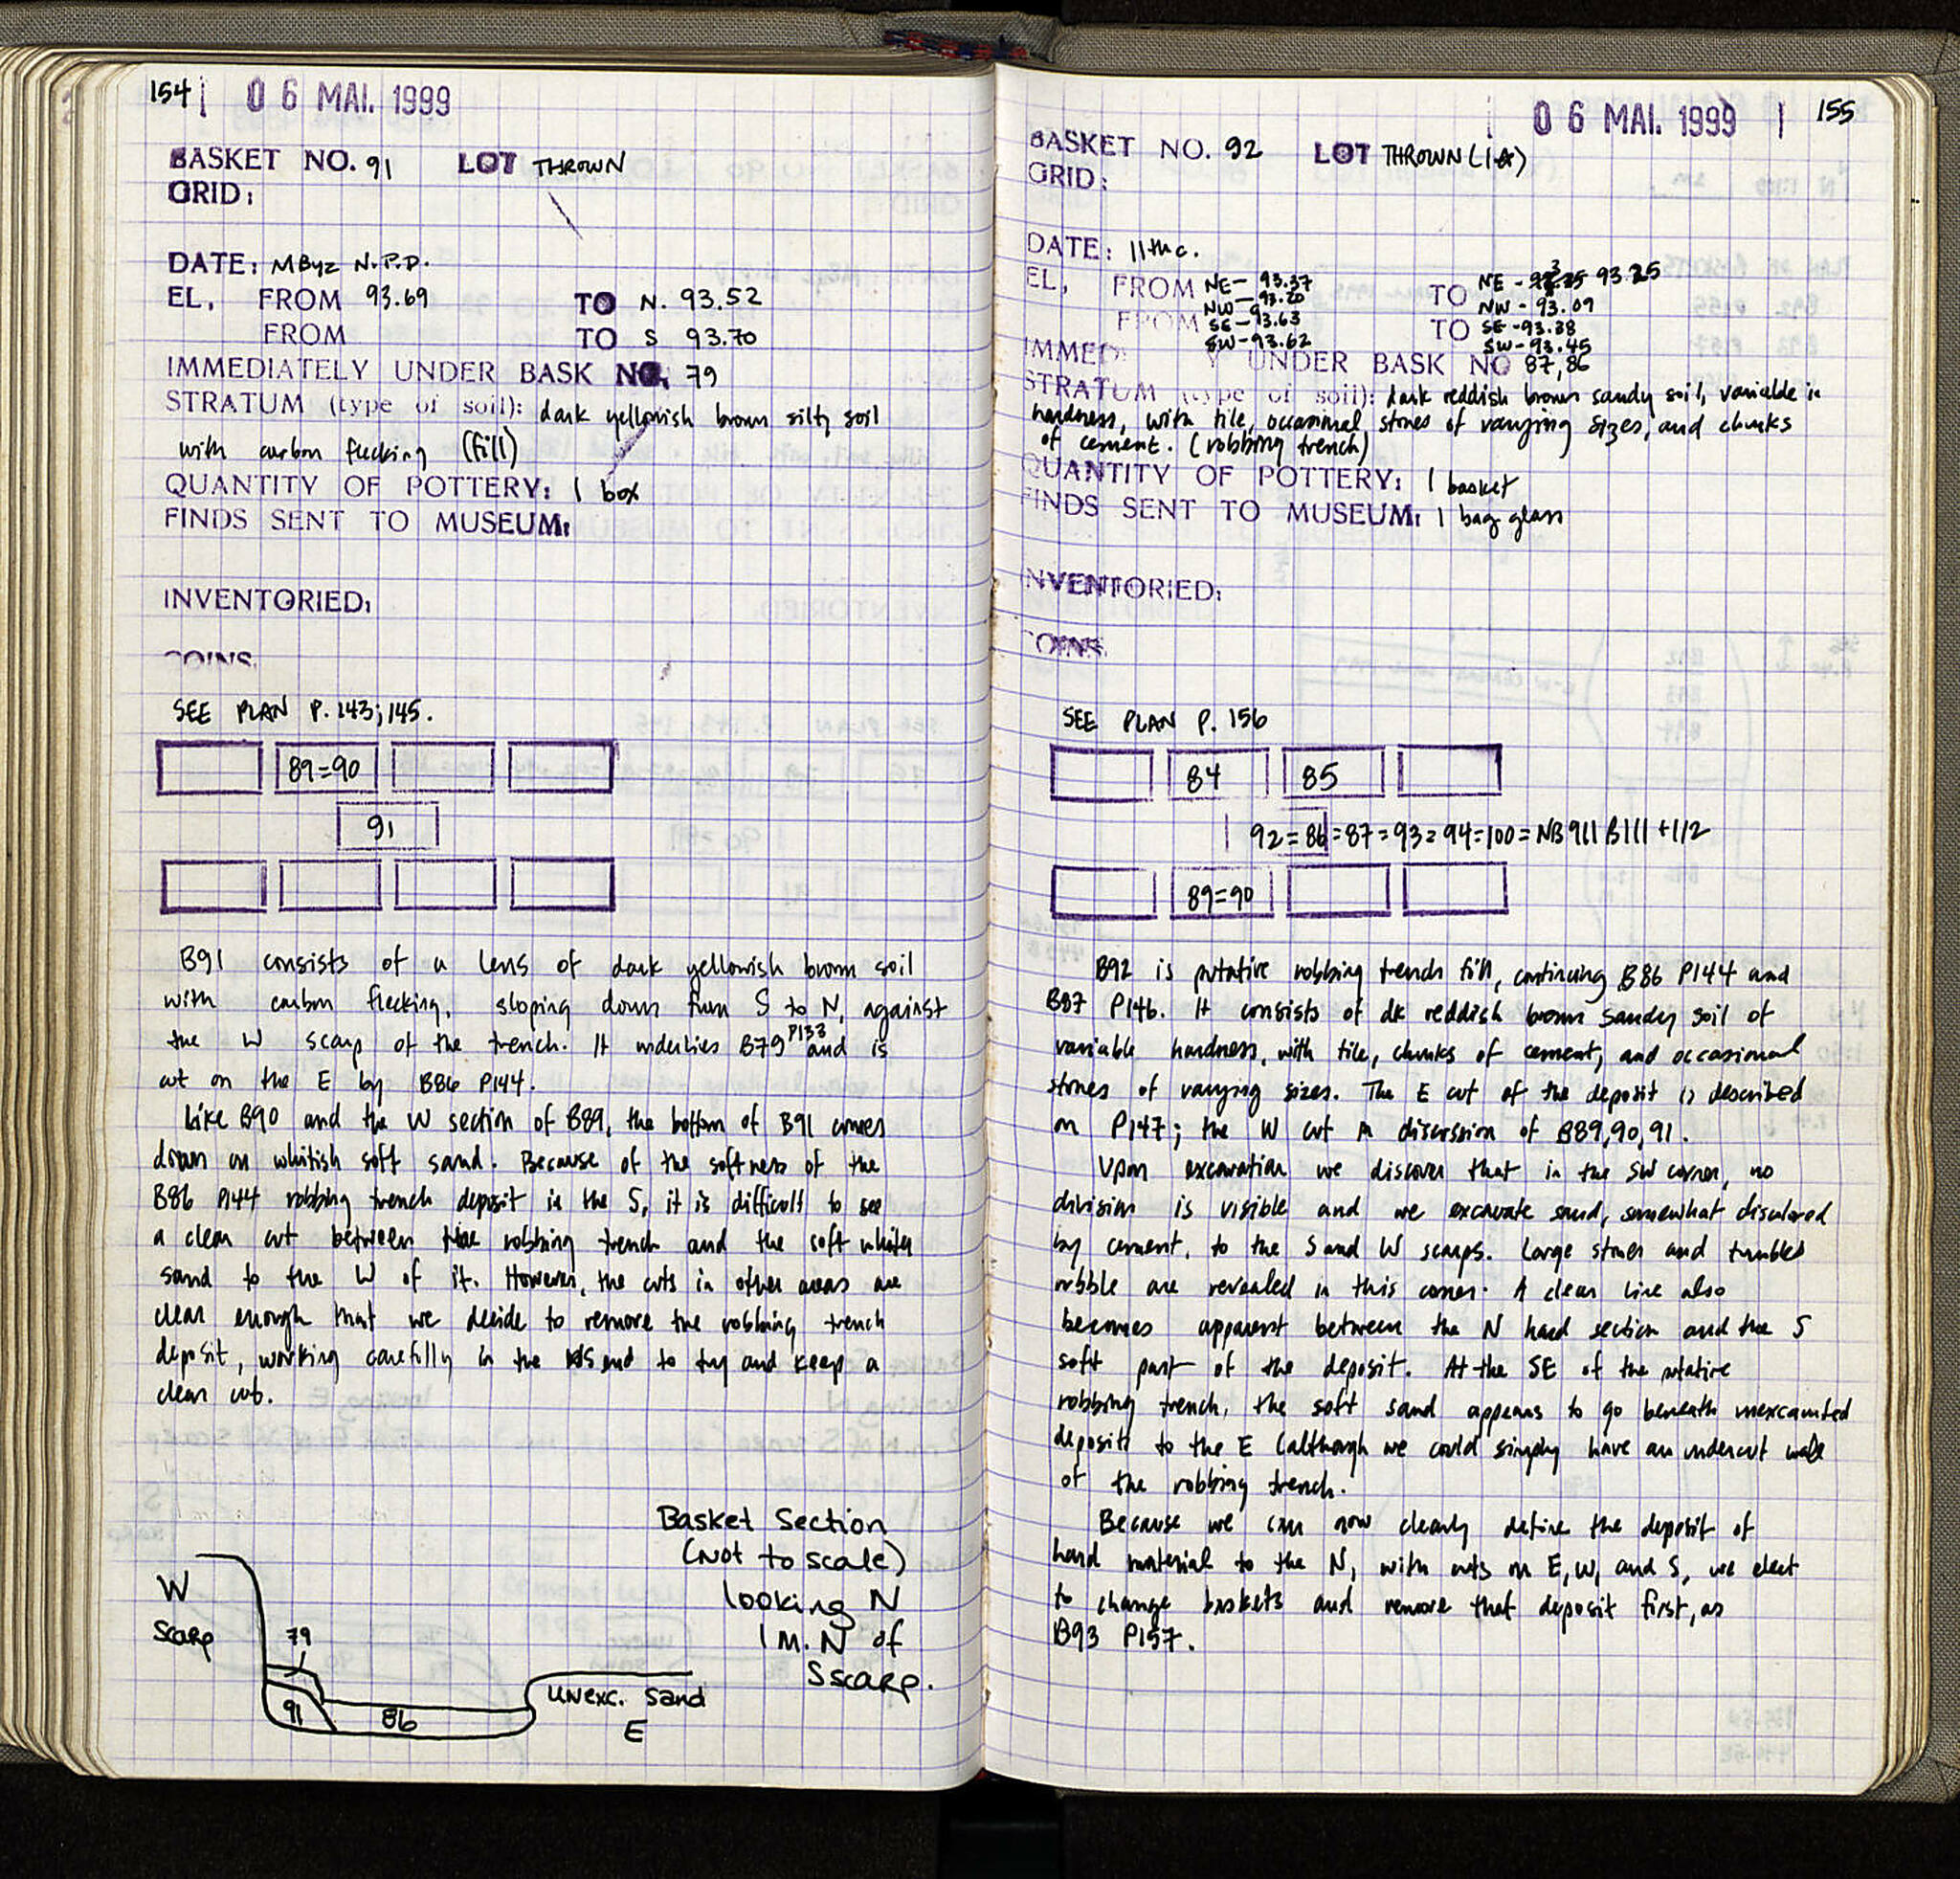 154 | 06 MAI. 1999
BASKET NO. 91 LOT THROWN
GRID:
DATE: MByz N.P.D.
EL, FROM 93.69 TO N. 93.52
FROM TO S 93.70
IMMEDIATELY UNDER BASK NO. 79
STRATUM (type of soil): dark yellowish brown silty soil
with carbon flecking (fill)
QUANTITY OF POTTERY: 1 box
FINDS SENT TO MUSEUM:
INVENTORIED:
COINS.
SEE PLAN P. 143; 145.
89=90
91
B91 consists of a lens of dark yellowish brown soil
with carbon flecking, sloping down from S to N, against
the W scarp of the trench. It underlies B79 P133 and is
cut on the E by B86 P144.
Like B90 and the W section of B89, the bottom of B91 comes
down on whitish soft sand. Because of the softness of the
B86 P144 robbing trench deposit in the S, it is difficult to see
a clear cut between the robbing trench and the soft white
sand to the W of it. However, the cuts in other areas are
clear enough that we decide to remove the robbing trench
deposit, working carefully in the S end to try and keep a
clean cut.
Basket Section
(Not to scale)
looking N
1 M. N of
S scarp.
W
scarp
79
91
86
unexc. sand
E
06 MAI. 1999 | 155
BASKET NO. 92 LOT THROWN (1 )
GRID:
DATE: 11th c.
EL, FROM NE- 93.37 TO NE - 93.25
NW - 93.20 NW - 93.09
FROM SE - 93.63 TO SE - 93.38
SW - 93.62 SW - 93.45
IMMED Y UNDER BASK NO 87, 86
STRATUM (type of soil): dark reddish brown sandy soil, variable in
hardness, with tile, occasional stones of varying sizes, and chunks
of cement. (robbing trench)
QUANTITY OF POTTERY: 1 basket
FINDS SENT TO MUSEUM: 1 bag glass
INVENTORIED:
COINS
SEE PLAN P. 156
84 85
92=86=87=93=94=100=NB 911 B111 +112
89=90
B92 is putative robbing trench fill, continuing B86 P144 and
B87 P146. It consists of dk reddish brown sandy soil of
variable hardness, with tile, chunks of cement, and occasional
stones of varying sizes. The E cut of the deposit is described
on P147; the W cut in discussion of B89, 90, 91.
Upon excavation we discover that in the SW corner, no
division is visible and we excavate sand, somewhat discolored
by cement, to the S and W scarps. Large stones and tumbled
rubble are revealed in this corner. A clear line also
becomes apparent between the N hard section and the S
soft part of the deposit. At the SE of the putative
robbing trench, the soft sand appears to go beneath unexcavated
deposits to the E (although we could simply have an undercut wall
of the robbing trench.
Because we can now clearly define the deposit of
hard material to the N, with cuts on E, W, and S, we elect
to change baskets and remove that deposit first, as
B93 P157.